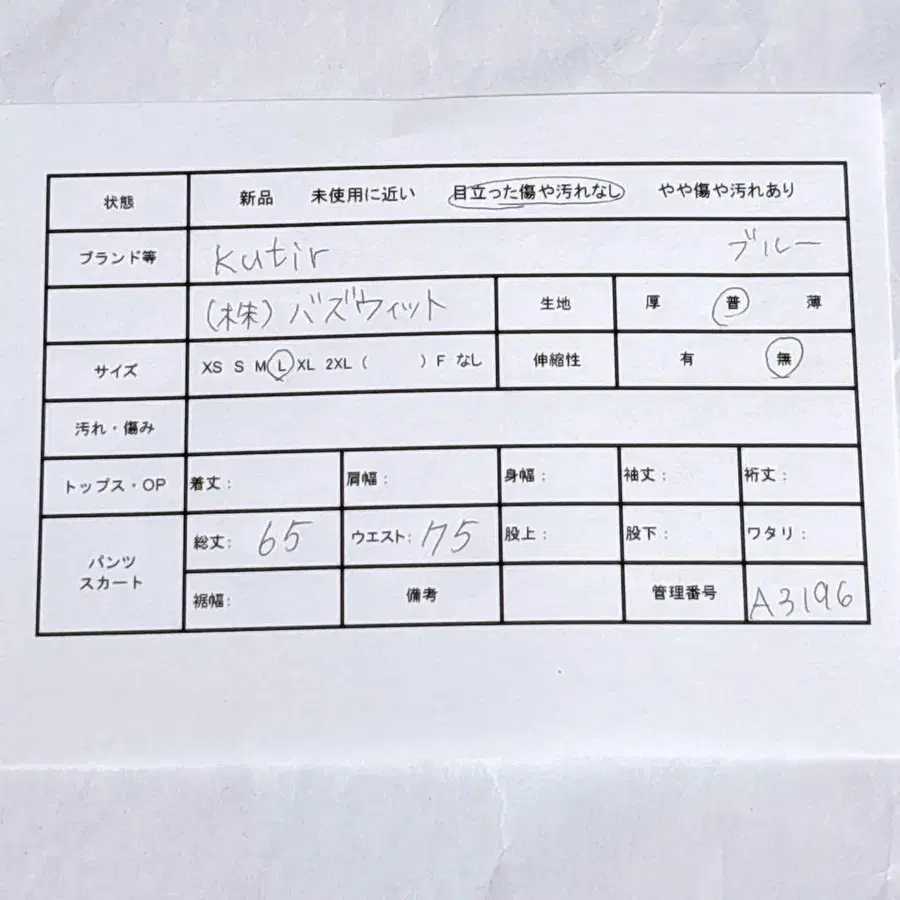 状態 新品 未使用に近い 目立った傷や汚れなし やや傷や汚れあり
ブランド等 kutir ブルー
(株)バズウィット 生地 厚 普 薄
サイズ XS S M L XL 2XL ( ) F なし 伸縮性 有 無
汚れ・傷み
トップス・OP 着丈: 肩幅: 身幅: 袖丈: 裄丈:
パンツ スカート 総丈: 65 ウエスト: 75 股上: 股下: ワタリ:
裾幅: 備考 管理番号 A3196